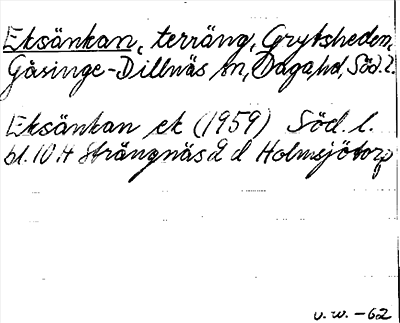 Eksänkan, terräng, Grytsheden,
Gåsinge-Dillnäs sn, Daga hd, Söd. l.
Eksänkan ek (1959) Söd. l.
bl. 10 H Strängnäs 2 d Holmsjötorp
v. w. -62